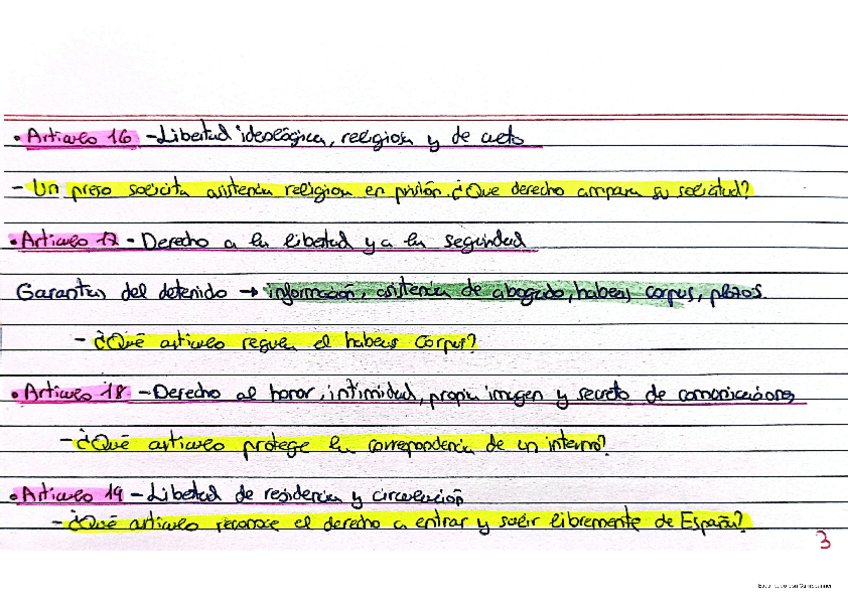 • Artículo 16 - Libertad ideológica, religiosa y de culto
- Un preso solicita asistencia religiosa en prisión. ¿Que derecho ampara su solicitud?
• Artículo 17 - Derecho a la libertad y a la seguridad
Garantías del detenido → información, asistencia de abogado, habeas corpus, plazos.
- ¿Qué artículo regula el habeas corpus?
• Artículo 18 - Derecho al honor, intimidad, propia imagen y secreto de comunicaciones
- ¿Qué artículo protege la correspondencia de un interno?
• Artículo 19 - Libertad de residencia y circulación
- ¿Qué artículo reconoce el derecho a entrar y salir libremente de España?
3